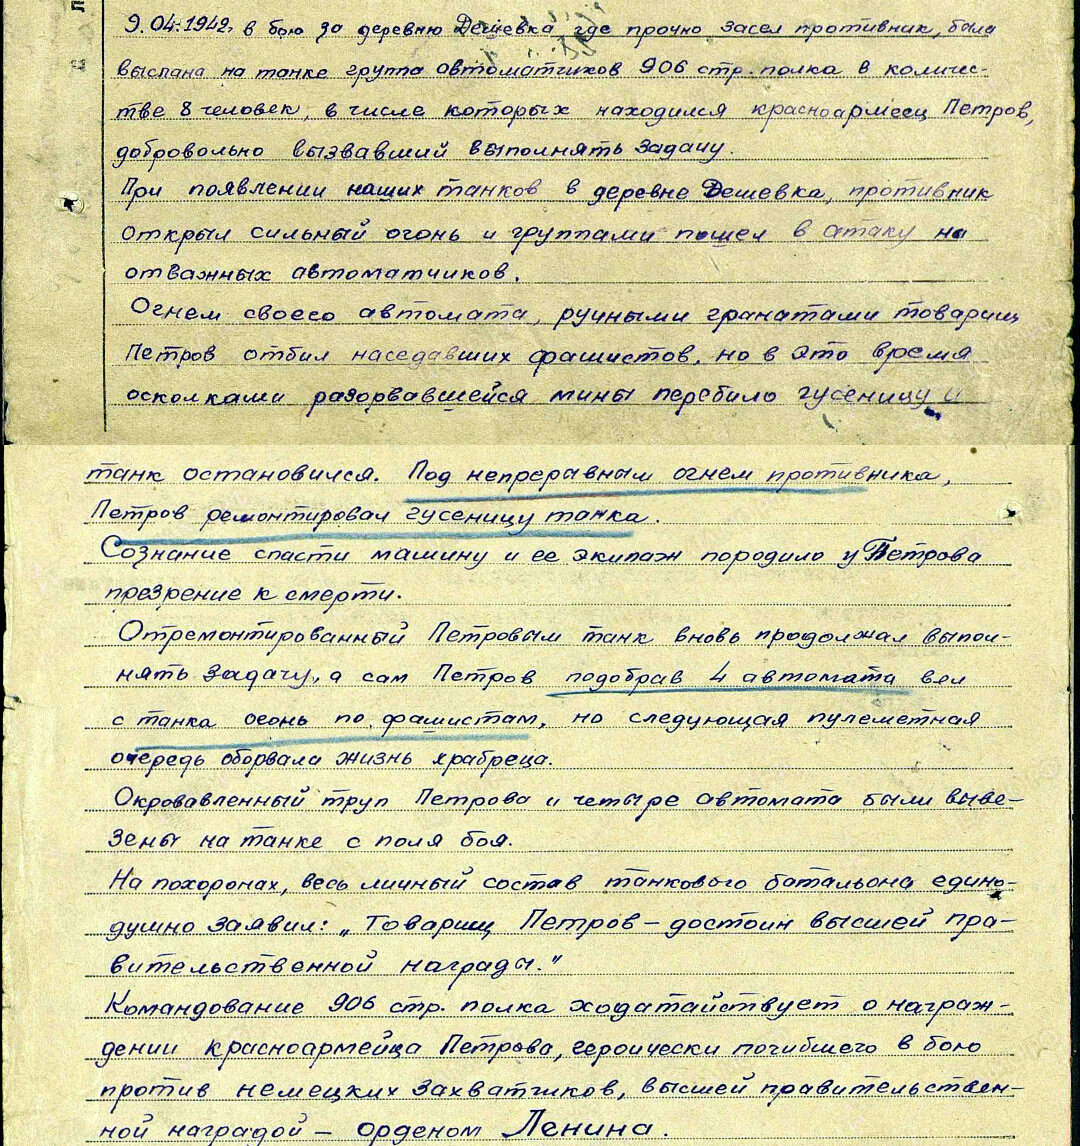 9.04.1942 в бою за деревню Дешевка где прочно засел противник, была
выслана на танке группа автоматчиков 906 стр. полка в количес-
тве 8 человек, в числе которых находился красноармеец Петров,
добровольно вызвавший выполнять задачу.
При появлении наших танков в деревне Дешевка, противник
открыл сильный огонь и группами пошел в атаку на
отважных автоматчиков.
Огнем своего автомата, ручными гранатами товарищ
Петров отбил наседавших фашистов, но в это время
осколками разорвавшейся мины перебило гусеницу и
танк остановился. Под непрерывным огнем противника,
Петров ремонтировал гусеницу танка.
Сознание спасти машину и ее экипаж породило у Петрова
презрение к смерти.
Отремонтированный Петровым танк вновь продолжал выпол-
нять задачу, а сам Петров подобрав 4 автомата вел
с танка огонь по фашистам, но следующая пулеметная
очередь оборвала жизнь храбреца.
Окровавленный труп Петрова и четыре автомата были выве-
зены на танке с поля боя.
На похоронах, весь личный состав танкового батальона едино-
душно заявил: „Товарищ Петров – достоин высшей пра-
вительственной награды."
Командование 906 стр. полка ходатайствует о награж-
дении красноармейца Петрова, героически погибшего в бою
против немецких захватчиков, высшей правительствен-
ной наградой – орденом Ленина.